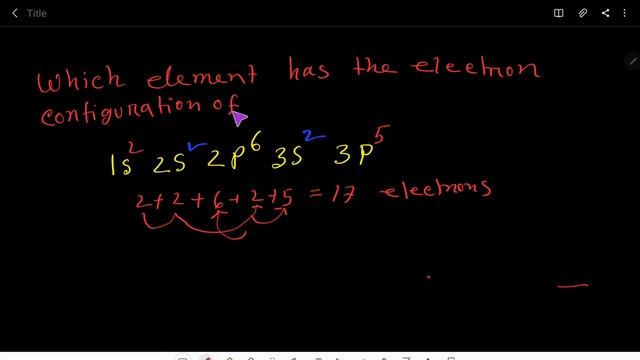 Title
Which element has the electron
configuration of
1s² 2s² 2p⁶ 3s² 3p⁵
2+2+6+2+5 = 17 electrons